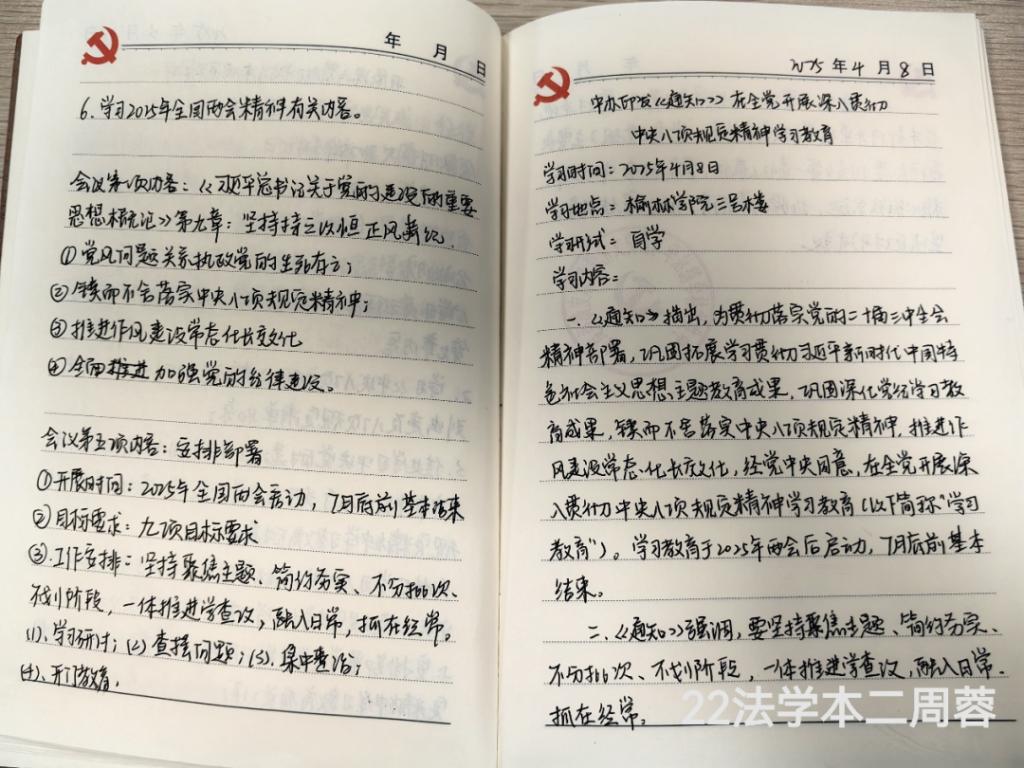 年 月 日
6.学习2025年全国两会精神有关内容。
会议第项内容：《习近平总书记关于党的建设的重要
思想概论》第九章：坚持持之以恒正风肃纪.
①党风问题关系执政党的生死存亡；
②锲而不舍落实中央八项规定精神；
③推进作风建设常态化长效化
④全面推进加强党的纪律建设。
会议第五项内容：安排部署
①开展时间：2025年全国两会启动，7月底前基本结束
②目标要求：九项目标要求
③.工作安排：坚持聚焦主题、简约务实、不分批次、
不划阶段，一体推进学查改，融入日常，抓在经常。
(1).学习研讨；(2)查摆问题；(3).集中整治；
(4).开门教育.
2025年4月8日
中办印发《通知》在全党开展深入贯彻
中央八项规定精神学习教育
学习时间：2025年4月8日
学习地点：榆林学院三号楼
学习形式：自学
学习内容：
一.《通知》指出，为贯彻落实党的二十届三中全会
精神部署，巩固拓展学习贯彻习近平新时代中国特
色社会主义思想主题教育成果，巩固深化党纪学习教
育成果，锲而不舍落实中央八项规定精神，推进作
风建设常态化长效化，经党中央同意，在全党开展深
入贯彻中央八项规定精神学习教育（以下简称“学习
教育”）。学习教育于2025年两会后启动，7月底前基本
结束。
二、《通知》强调，要坚持聚焦主题、简约务实、
不分批次、不划阶段，一体推进学查改，融入日常.
抓在经常。
22法学本二周蓉